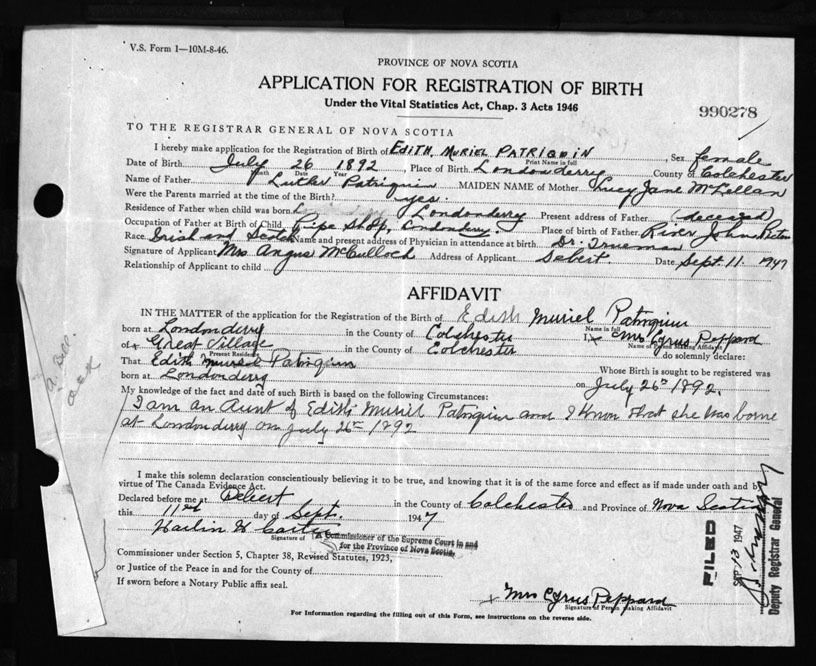 V.S. Form 1—10M-8-46.
PROVINCE OF NOVA SCOTIA
APPLICATION FOR REGISTRATION OF BIRTH
Under the Vital Statistics Act, Chap. 3 Acts 1946
990278
TO THE REGISTRAR GENERAL OF NOVA SCOTIA
I hereby make application for the Registration of Birth of EDITH, MURIEL PATRIQUIN, Sex female
Print Name in full
Date of Birth July 26 1892, Place of Birth Londonderry County of Colchester
Month Date Year
Name of Father Luther Patriquin MAIDEN NAME of Mother Lucy Jane McLellan
Were the Parents married at the time of Birth? yes.
Residence of Father when child was born Londonderry Present address of Father (deceased)
Occupation of Father at Birth of Child Pipe Shop, Londonderry. Place of birth of Father River John Pictou
Race Irish and Scotch Name and present address of Physician in attendance at birth Dr. Trueman
Signature of Applicant Mrs Angus McCulloch Address of Applicant Debert. Date Sept. 11. 1947
Relationship of Applicant to child
AFFIDAVIT
IN THE MATTER of the application for the Registration of Birth of Edith Muriel Patriquin
Name in full
born at Londonderry in the County of Colchester I, x Mrs Cyrus Peppard
Name of Person making Affidavit
of x Great Village in the County of Colchester do solemnly declare:
Present Residence
That Edith Muriel Patriquin Whose Birth is sought to be registered was
born at Londonderry on July 26th 1892.
My knowledge of the fact and date of such Birth is based on the following Circumstances:
I am an Aunt of Edith Muriel Patriquin and I know that she was borne
at Londonderry on July 26th 1892
I make this solemn declaration conscientiously believing it to be true, and knowing that it is of the same force and effect as if made under oath and by
virtue of The Canada Evidence Act.
Declared before me at Debert in the County of Colchester and Province of Nova Scotia
this 11th day of Sept. 1947
Harlin H Carter
Signature of
A Commissioner of the Supreme Court in and
for the Province of Nova Scotia.
Commissioner under Section 5, Chapter 38, Revised Statutes, 1923,
or Justice of the Peace in and for the County of
If sworn before a Notary Public affix seal.
x Mrs Cyrus Peppard
Signature of Person making Affidavit
For Information regarding the filling out of this Form, see Instructions on the reverse side.
FILED
1947
Deputy Registrar General